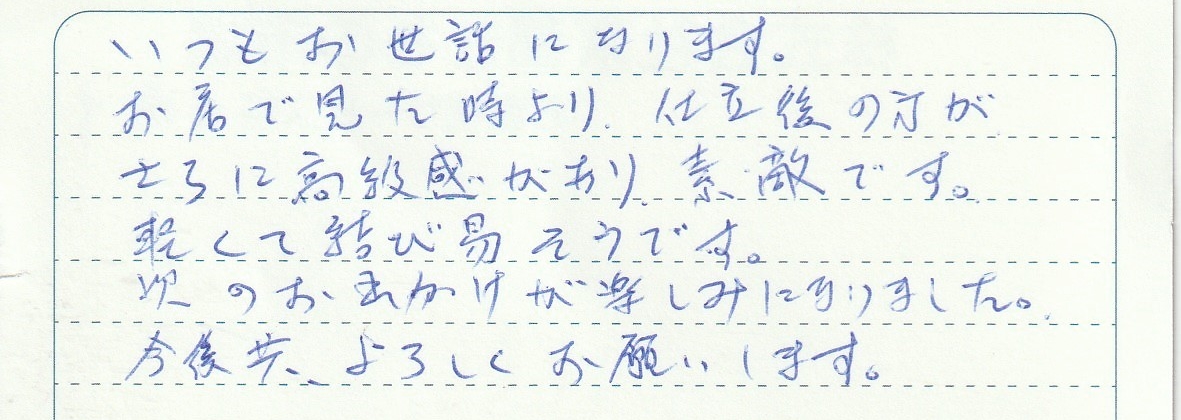 いつもお世話になります。
お店で見た時より、仕立後の方が
さらに高級感があり、素敵です。
軽くて結び易そうです。
次のお出かけが楽しみになりました。
今後共、よろしくお願いします。